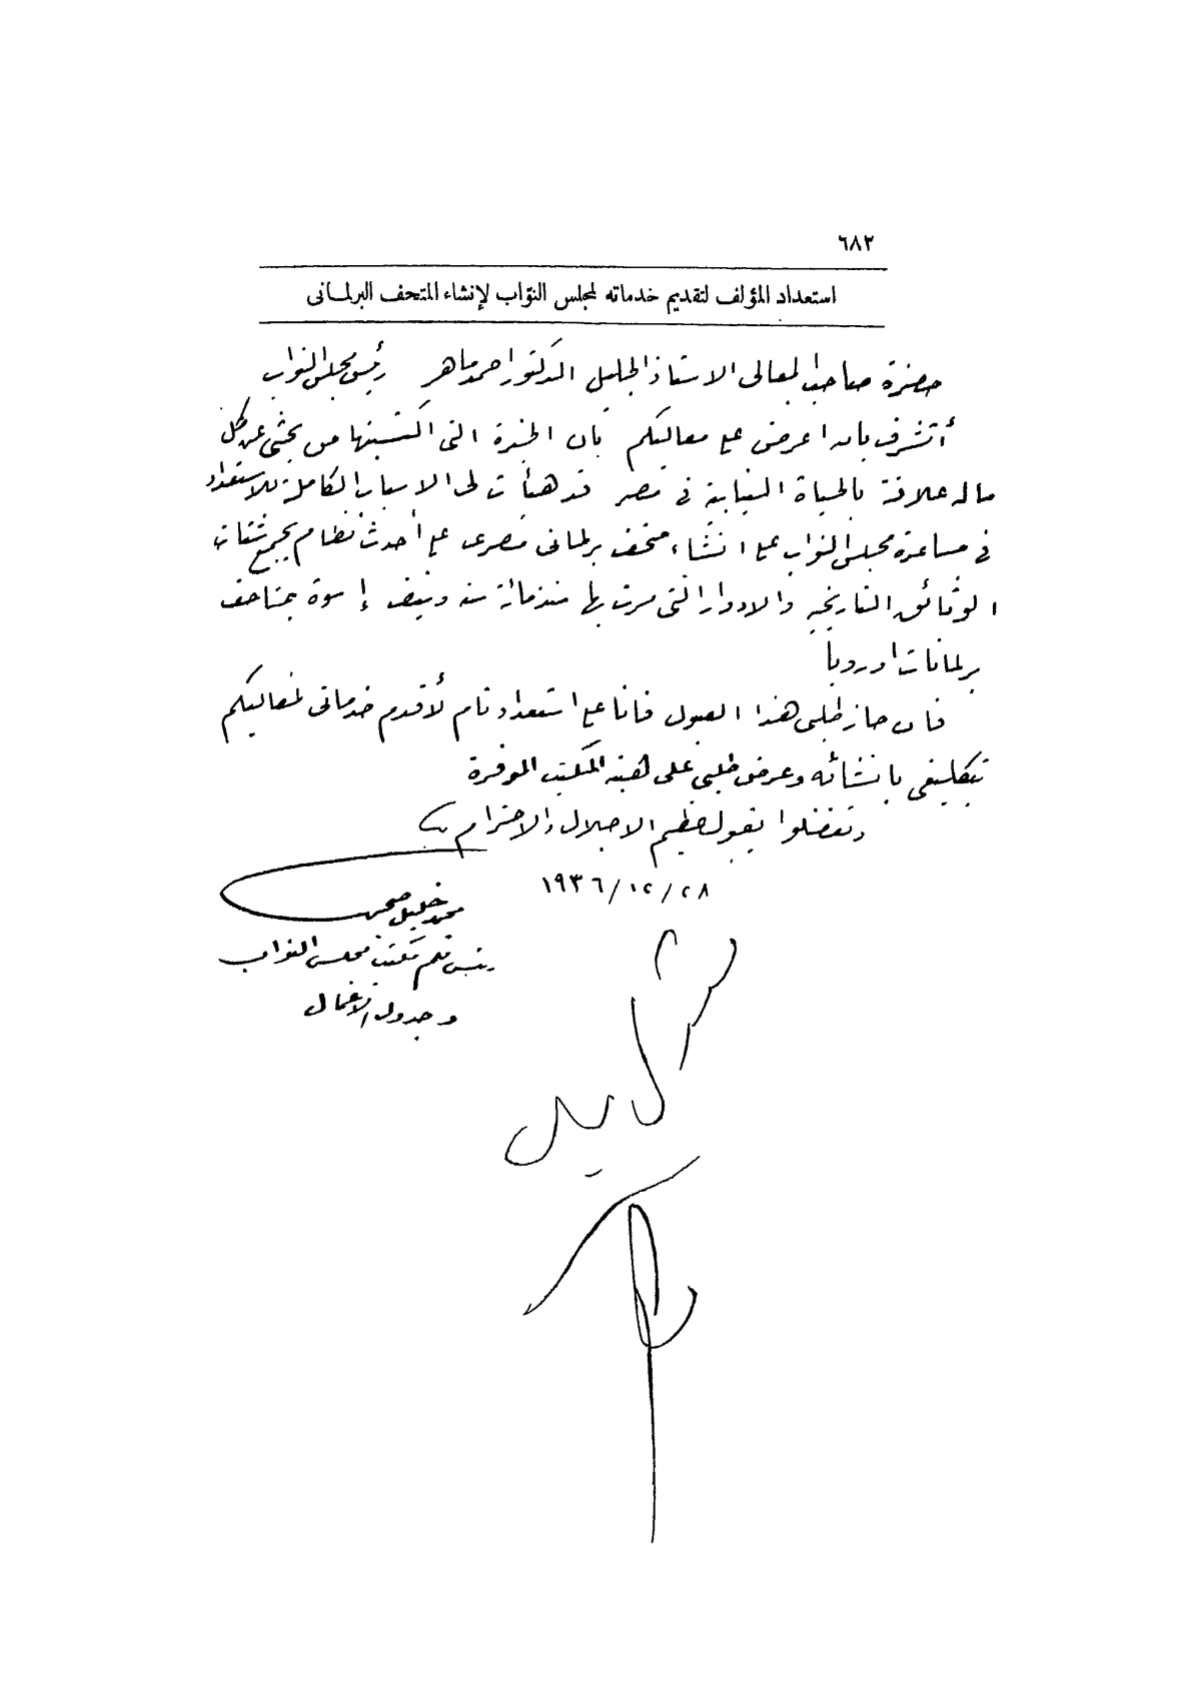 ٦٨٢
استعداد المؤلف لتقديم خدماته لمجلس النواب لإنشاء المتحف البرلمانى
حضرة صاحب المعالى الاستاذ الجليل الدكتور احمد ماهر رئيس مجلس النواب
أتشرف بان اعرض على معاليكم بان الخبرة التى اكتسبتها من بحثى عن كل
ماله علاقة بالحياة النيابية فى مصر قد هيأت لى الاسباب الكاملة للاستعداد
فى مساعدة مجلس النواب على انشاء متحف برلمانى مصرى على أحدث نظام يجمع شتات
الوثائق التاريخية والادوار التى مرت بها منذ مائة سنة ونيف إسوة بمتاحف
برلمانات اوروبا
فان حاز طلبى هذا القبول فانا على استعداد تام لأقدم خدماتى لمعاليكم
بتكليفى بانشائه وعرض طلبى على هيئة المكتب الموقرة
وتفضلوا بقبول عظيم الاجلال والاحترام
٢٨/١٢/١٩٣٦
محمد خليل صبحى
رئيس قلم مكتب مجلس النواب
وجدول الأعمال